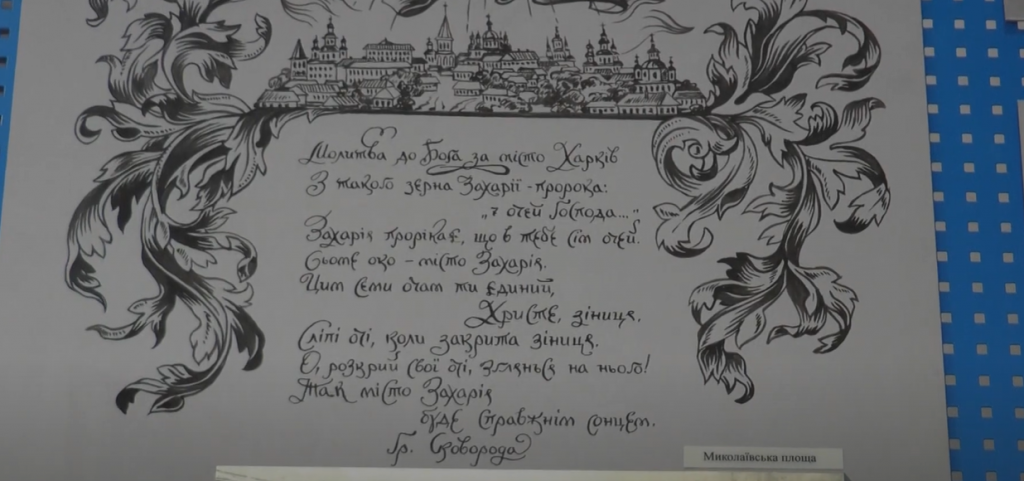 Молитва до Бога за місто Харків
З такого зерна Захарії - пророка:
„7 очей Господа..."
Захарія прорікає, що в тебе сім очей.
Сьоме око - місто Захарія.
Цим семи очам ти єдиний,
Христе, зіниця.
Сліпі очі, коли закрита зіниця.
О, розкрий свої очі, зглянься на нього!
Так місто Захарія
буде справжнім сонцем.
Гр. Сковорода
Миколаївська площа